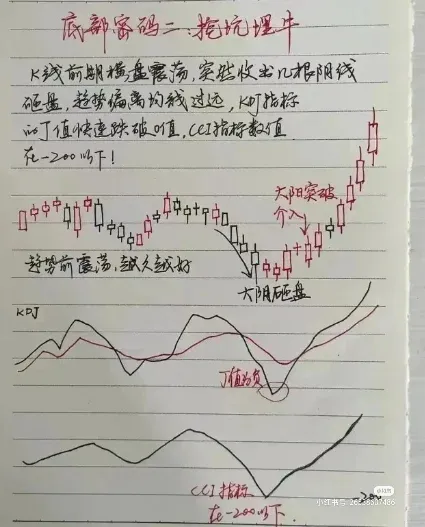 底部密码二:挖坑埋牛
K线前期横盘震荡,突然收出几根阴线
砸盘,趋势偏离均线过远,KDJ指标
的J值快速跌破0值,CCI指标数值
在-200以下!
大阳突破
介入
趋势前震荡,越久越好
大阴砸盘
KDJ
J值为负
CCI指标
在-200以下.
-200
小红书
小红书号